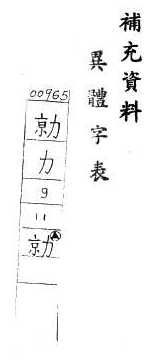 補充資料
異體字表
00965
勍
力
9
11
勍Ⓐ